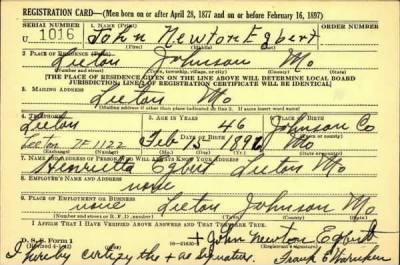 REGISTRATION CARD—(Men born on or after April 28, 1877 and on or before February 16, 1897)
SERIAL NUMBER 1. NAME (Print) ORDER NUMBER
U 1016 John Newton Egbert
(First) (Middle) (Last)
2. PLACE OF RESIDENCE (Print)
Leeton Johnson Mo
(Number and street) (Town, township, village, or city) (County) (State)
[THE PLACE OF RESIDENCE GIVEN ON THE LINE ABOVE WILL DETERMINE LOCAL BOARD
JURISDICTION; LINE 2 OF REGISTRATION CERTIFICATE WILL BE IDENTICAL]
3. MAILING ADDRESS
Leeton Mo
[Mailing address if other than place indicated on line 2. If same insert word same]
4. TELEPHONE 5. AGE IN YEARS 6. PLACE OF BIRTH
Leeton 46 Johnson Co
DATE OF BIRTH
Leeton 1122 Feb 15 1896 Mo
7. NAME AND ADDRESS OF PERSON WHO WILL ALWAYS KNOW YOUR ADDRESS
Henrietta Egbert Leeton Mo
8. EMPLOYER'S NAME AND ADDRESS
none
9. PLACE OF EMPLOYMENT OR BUSINESS
none Leeton Johnson Mo
(Number and street or R. F. D. number) (Town) (County) (State)
I AFFIRM THAT I HAVE VERIFIED ABOVE ANSWERS AND THAT THEY ARE TRUE.
D. S. S. Form 1 + John Newton Egbert
(Registrant's signature)
I hereby certify the + as signature. Frank E